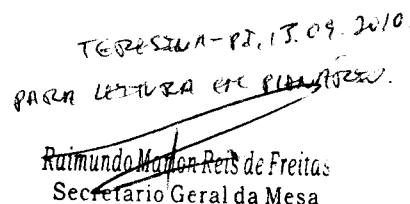 TERESINA-PI, 13.09.2010
PARA LEITURA EM PLENÁRIO.
Raimundo Marlon Reis de Freitas
Secretário Geral da Mesa